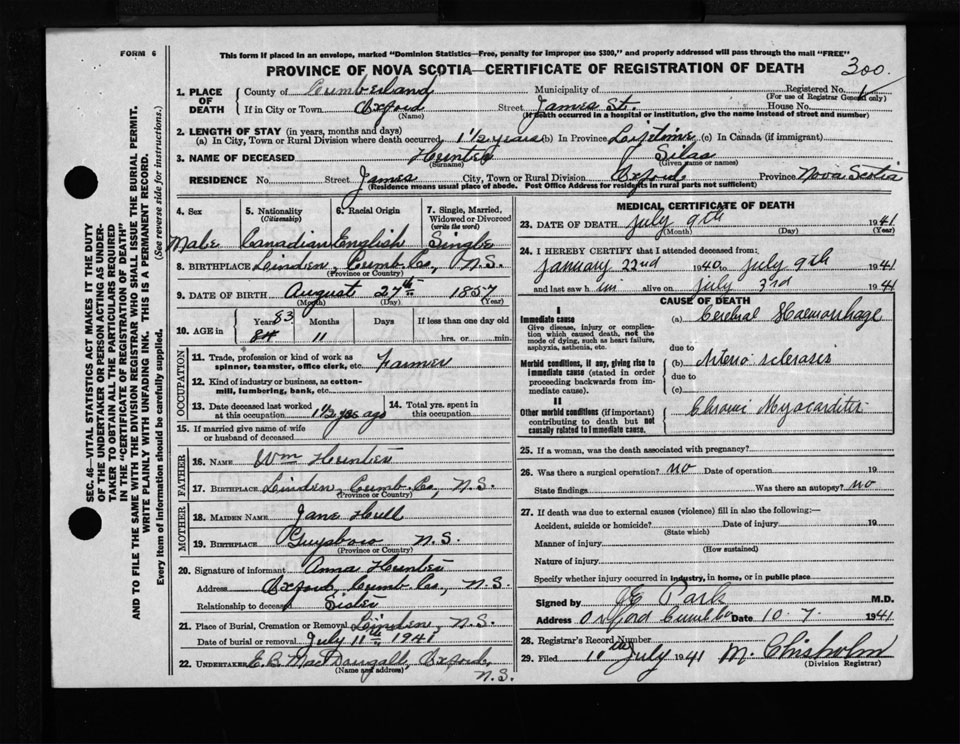 FORM 6
This form if placed in an envelope, marked "Dominion Statistics—Free, penalty for improper use $300," and properly addressed will pass through the mail "FREE"
PROVINCE OF NOVA SCOTIA—CERTIFICATE OF REGISTRATION OF DEATH
300
1. PLACE OF DEATH
County of Cumberland Municipality of Registered No.
(For use of Registrar General only)
If in City or Town Oxford Street James St. House No.
(Name) (If death occurred in a hospital or institution, give the name instead of street and number)
2. LENGTH OF STAY (in years, months and days)
(a) In City, Town or Rural Division where death occurred 1 1/2 years (b) In Province Lifetime (c) In Canada (if immigrant)
3. NAME OF DECEASED Hunter Silas
(Surname) (Given name or names)
RESIDENCE No. Street James City, Town or Rural Division Oxford Province Nova Scotia
(Residence means usual place of abode. Post Office Address for residents in rural parts not sufficient)
4. Sex 5. Nationality (Citizenship) 6. Racial Origin 7. Single, Married, Widowed or Divorced (write the word)
Male Canadian English Single
8. BIRTHPLACE Linden, Cumb. Co., N.S.
(Province or Country)
9. DATE OF BIRTH August 27th 1857
(Month) (Day) (Year)
10. AGE in Years 83 84 Months 11 Days If less than one day old
hrs. or min.
OCCUPATION
11. Trade, profession or kind of work as spinner, teamster, office clerk, etc. Farmer
12. Kind of industry or business, as cotton-mill, lumbering, bank, etc.
13. Date deceased last worked at this occupation 1 1/2 yrs ago 14. Total yrs. spent in this occupation
15. If married give name of wife or husband of deceased
FATHER
16. NAME Wm Hunter
17. BIRTHPLACE Linden, Cumb. Co., N.S.
(Province or Country)
MOTHER
18. MAIDEN NAME Jane Hull
19. BIRTHPLACE Guysboro N.S.
(Province or Country)
20. Signature of informant Anna Hunter
Address Oxford, Cumb. Co., N.S.
Relationship to deceased Sister
21. Place of Burial, Cremation or Removal Linden, N.S.
Date of burial or removal July 11th 1941
22. UNDERTAKER E. B. MacDougall, Oxford, N.S.
(Name and address)
MEDICAL CERTIFICATE OF DEATH
23. DATE OF DEATH July 9th 1941
(Month) (Day) (Year)
24. I HEREBY CERTIFY that I attended deceased from:
January 22nd 1940 to July 9th 1941
and last saw h im alive on July 3rd 1941
CAUSE OF DEATH
I
Immediate cause (a) Cerebral Haemorrhage
Give disease, injury or complication which caused death, not the mode of dying, such as heart failure, asphyxia, asthenia, etc.
due to
Morbid conditions, if any, giving rise to immediate cause (stated in order proceeding backwards from immediate cause). (b) Arterio sclerosis
due to
(c)
II
Other morbid conditions (if important) contributing to death but not causally related to immediate cause. Chronic Myocarditis
25. If a woman, was the death associated with pregnancy?
26. Was there a surgical operation? no Date of operation 19
State findings Was there an autopsy? no
27. If death was due to external causes (violence) fill in also the following:—
Accident, suicide or homicide? Date of injury 19
(State which)
Manner of injury
(How sustained)
Nature of injury
Specify whether injury occurred in industry, in home, or in public place
Signed by E Park M.D.
Address Oxford Cumb Co Date 10.7. 1941
28. Registrar's Record Number
29. Filed 10th July 1941 M. Chisholm
(Division Registrar)
SEC. 46—VITAL STATISTICS ACT MAKES IT THE DUTY
OF THE UNDERTAKER OR PERSON ACTING AS UNDER-
TAKER TO OBTAIN ALL THE PARTICULARS REQUIRED
IN THE "CERTIFICATE OF REGISTRATION OF DEATH"
AND TO FILE THE SAME WITH THE DIVISION REGISTRAR WHO SHALL ISSUE THE BURIAL PERMIT.
WRITE PLAINLY WITH UNFADING INK. THIS IS A PERMANENT RECORD.
Every item of information should be carefully supplied. (See reverse side for instructions.)